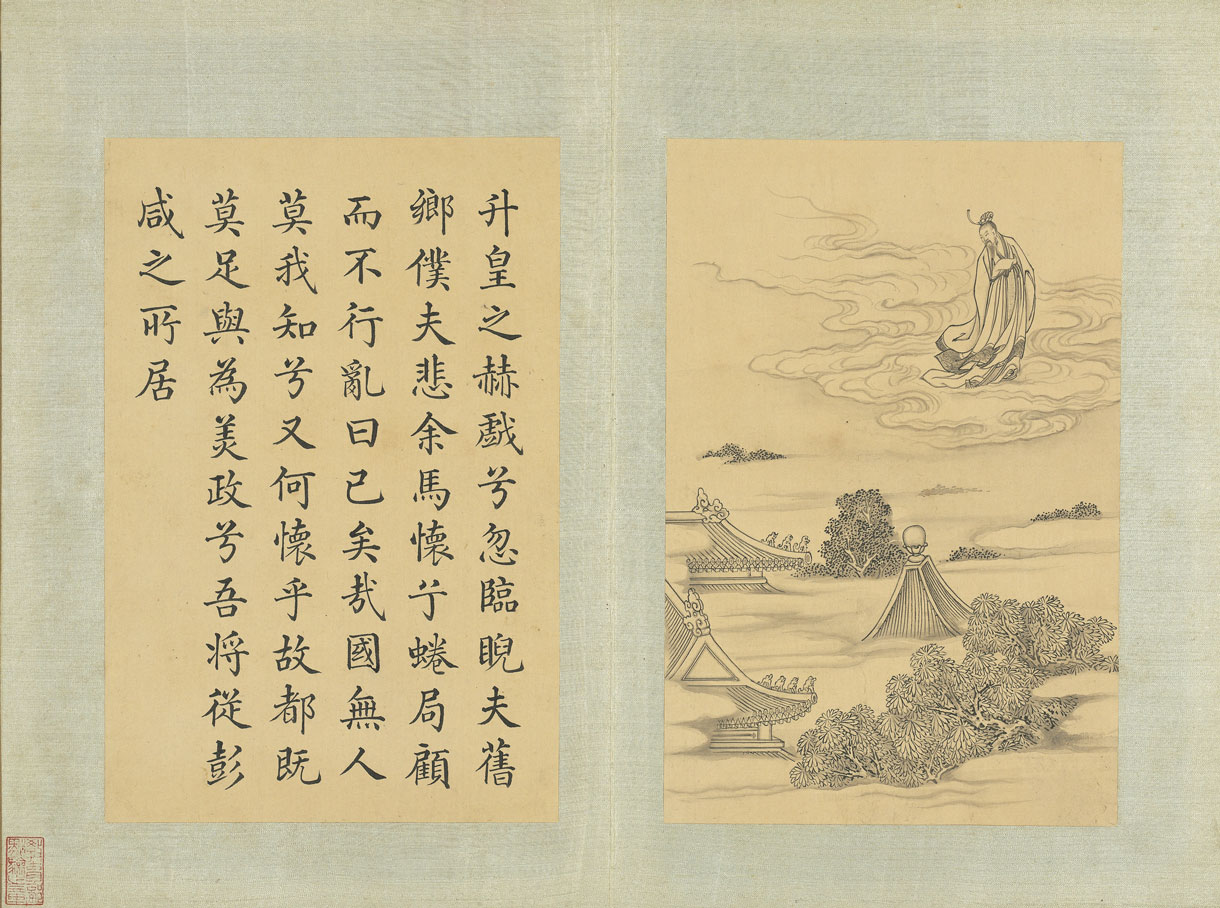 升皇之赫戲兮忽臨睨夫舊
鄉僕夫悲余馬懷兮蜷局顧
而不行亂曰已矣哉國無人
莫我知兮又何懷乎故都既
莫足與為美政兮吾將從彭
咸之所居